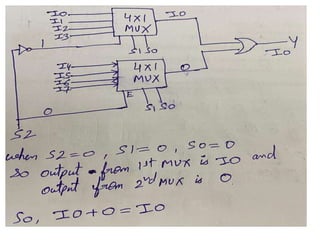 I0
I1
I2
I3
4X1
MUX
I0
S1 S0
1
Y
I0
I4
I5
I6
I7
4X1
MUX
0
E
S1 S0
0
S2
when S2=0, S1=0, S0=0
so output from 1st MUX is I0 and
output from 2nd MUX is 0.
So, I0+0=I0